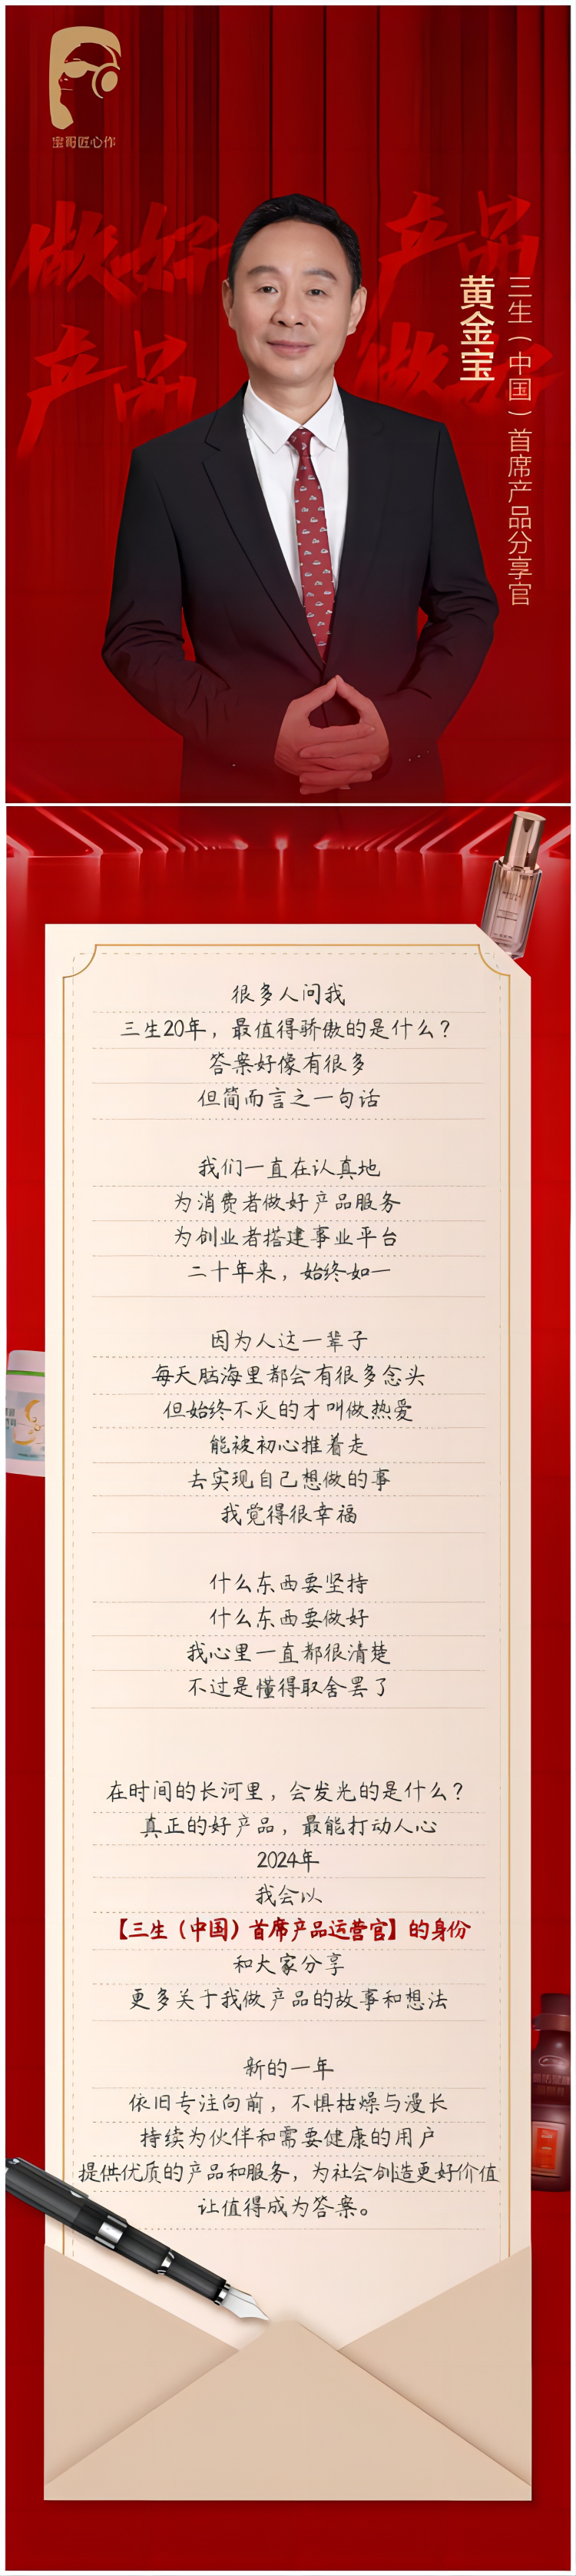 宝哥匠心作
做好产品
产品做好
黄金宝
三生（中国）首席产品分享官
很多人问我
三生20年，最值得骄傲的是什么？
答案好像有很多
但简而言之一句话
我们一直在认真地
为消费者做好产品服务
为创业者搭建事业平台
二十年来，始终如一
因为人这一辈子
每天脑海里都会有很多念头
但始终不灭的才叫做热爱
能被初心推着走
去实现自己想做的事
我觉得很幸福
什么东西要坚持
什么东西要做好
我心里一直都很清楚
不过是懂得取舍罢了
在时间的长河里，会发光的是什么？
真正的好产品，最能打动人心
2024年
我会以
【三生（中国）首席产品运营官】的身份
和大家分享
更多关于我做产品的故事和想法
新的一年
依旧专注向前，不惧枯燥与漫长
持续为伙伴和需要健康的用户
提供优质的产品和服务，为社会创造更好价值
让值得成为答案。